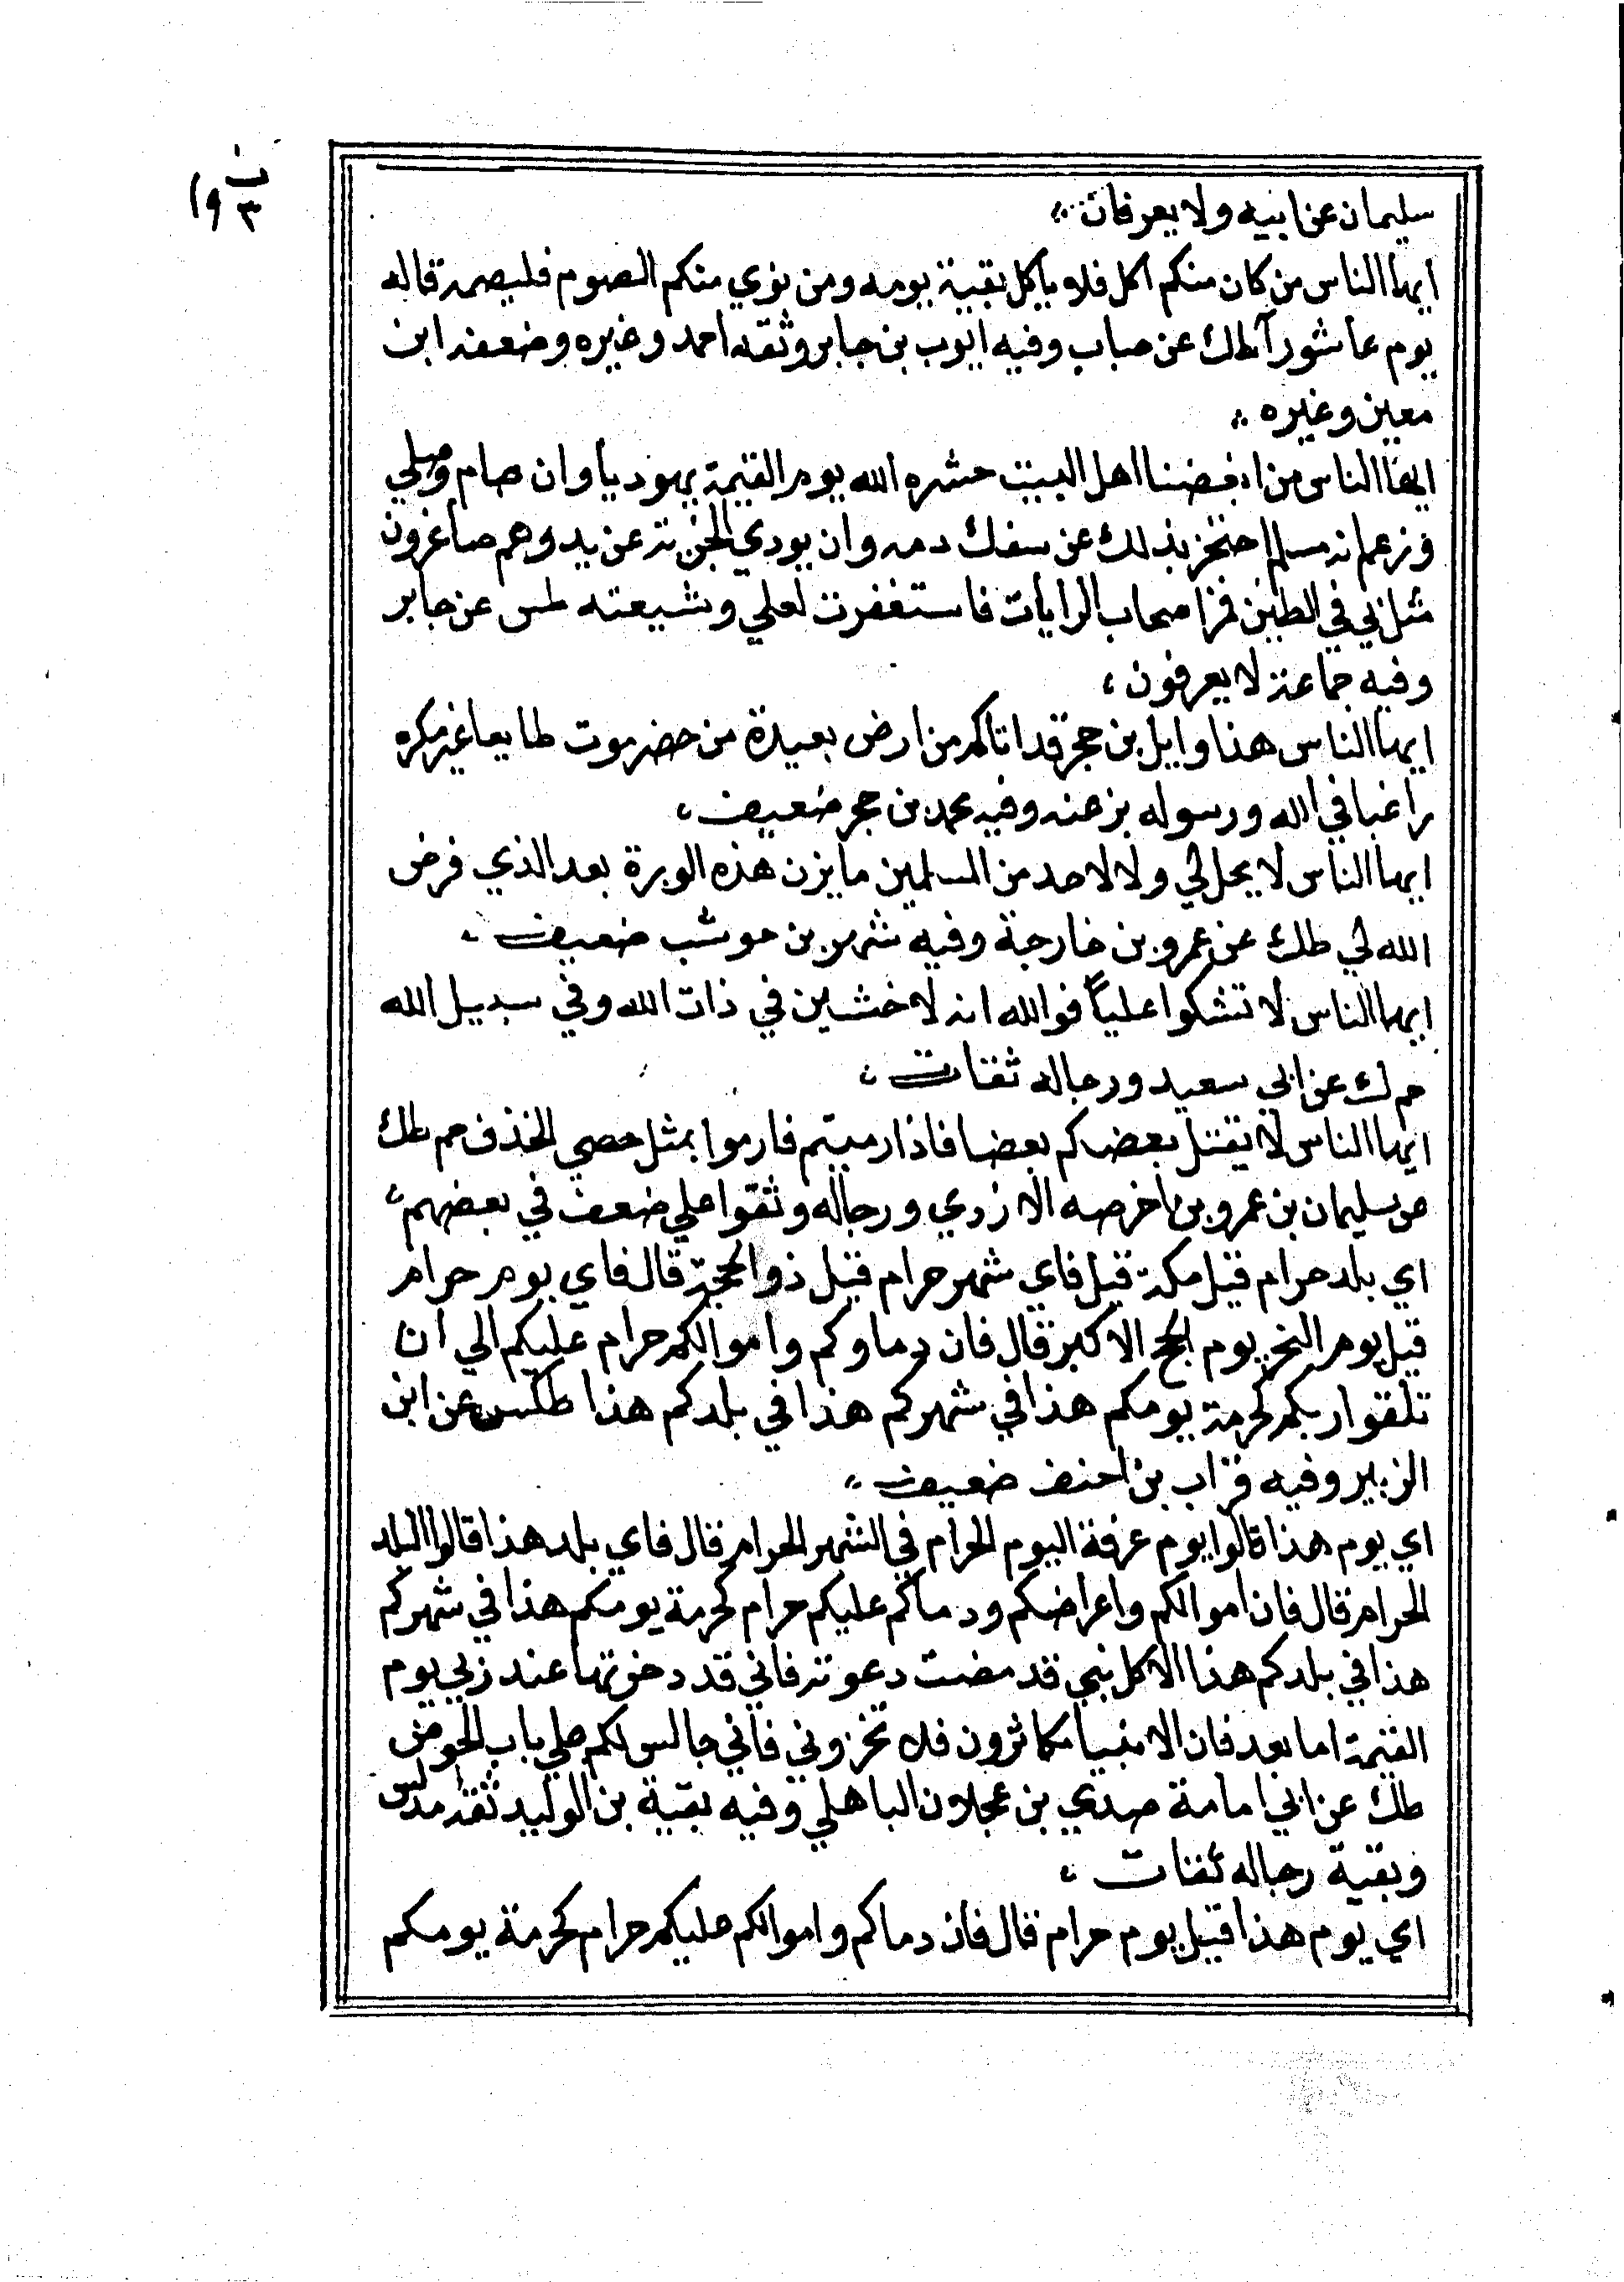 سليمان عن ابيه ولا يعرفان
ايها الناس من كان منكم اكل فلا ياكل بقية يومه ومن نوي منكم الصوم فليصمه قاله
يوم عاشورآ طك عن حباب وفيه ايوب بن جابر وثقه احمد وغيره وضعفه ابن
معين وغيره
ايها الناس من ابغضنا اهل البيت حشره الله يوم القيمة يهوديا وان صام وصلي
وزعم انه مسلم احتجز بذلك عن سفك دمه وان يودي الجزية عن يد وهم صاغرون
مثل لي في الطين فمر اصحاب الرايات فاستغفرت لعلي وشيعته طس عن جابر
وفيه جماعة لا يعرفون
ايها الناس هذا وايل بن حجر قد اتاكم من ارض بعيدة من حضرموت طايعا غير مكره
راغبا في الله ورسوله بز عنه وفيه محمد بن حجر ضعيف
ايها الناس لا يحل لي ولا لاحد من المسلمين ما يزن هذه الوبرة بعد الذي فرض
الله لي طك عن عمرو بن خارجة وفيه شهر بن حوشب ضعيف
ايها الناس لا تشكوا علياً فوالله انه لاخشين في ذات الله وفي سبيل الله
حم ك عن ابي سعيد ورجاله ثقات
ايها الناس لا يقتل بعضكم بعضا فاذا رميتم فارموا بمثل حصي الخذف حم طك
عن سليمان بن عمرو بن احرصه الازدي ورجاله وثقوا علي ضعف في بعضهم
اي بلد حرام قيل مكة قيل فاي شهر حرام قيل ذو الحجة قال فاي يوم حرام
قيل يوم النحر يوم الحج الاكبر قال فان دماوكم واموالكم حرام عليكم الي ان
تلقوا ربكم كحرمة يومكم هذا في شهركم هذا في بلدكم هذا طكس عن ابن
الزبير وفيه فرات بن احنف ضعيف
اي يوم هذا قالوا يوم عرفة اليوم الحرام في الشهر الحرام قال فاي بلد هذا قالوا البلد
الحرام قال فان اموالكم واعراضكم ودماكم عليكم حرام كحرمة يومكم هذا في شهركم
هذا في بلدكم هذا الا كل نبي قد مضت دعوته فاني قد دخرتها عند ربي يوم
القيمة اما بعد فان الانبيا مكاثرون فلا تخزوني فاني جالس لكم علي باب الحوض
طك عن ابي امامة صدي بن عجلان الباهلي وفيه بقية بن الوليد ثقة مدلس
وبقية رجاله ثقات
اي يوم هذا قيل يوم حرام قال فان دماكم واموالكم عليكم حرام كحرمة يومكم